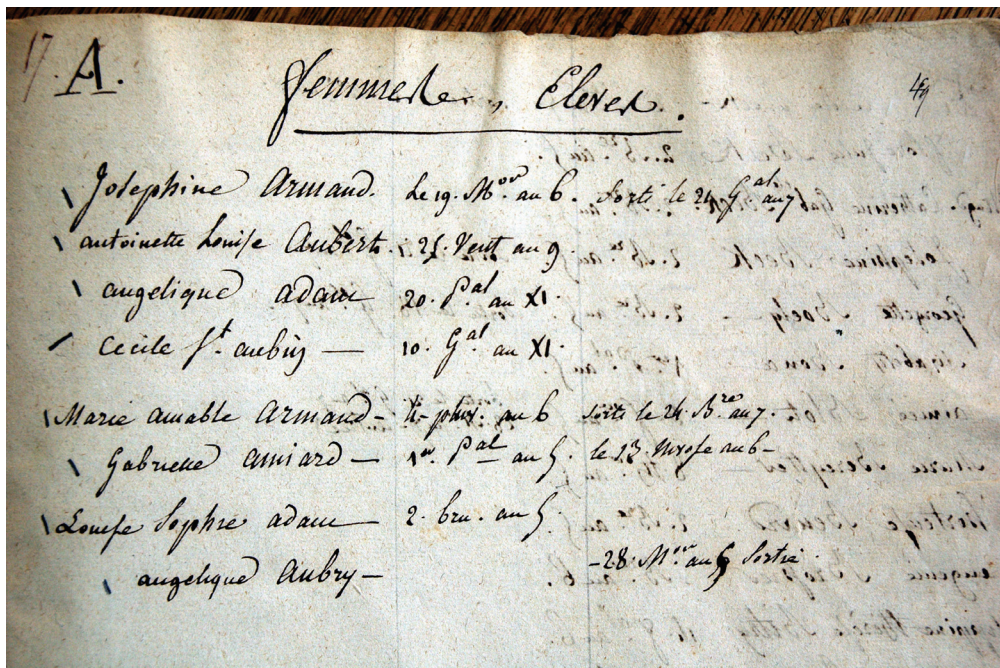 17 A. 49
femmes Eleves.
Josephine Armand. Le 19. M.or au 6. Sorti le 24 G.al au 7
antoinette Louise Aubert. 25. Vent au 9.
angelique adam 20. P.al au XI.
Cecile S.t aubin — 10. G.al au XI.
Marie amable Armand — 4 pluv. au 6 sorti le 24. B.re au 7.
Gabrielle amiard — 1.er P.al au 5. le 23. nivose au 6 —
Louise Sophie adam — 2. bru. au 5.
angelique Aubry — – 28. M.or au 6 Sortie.